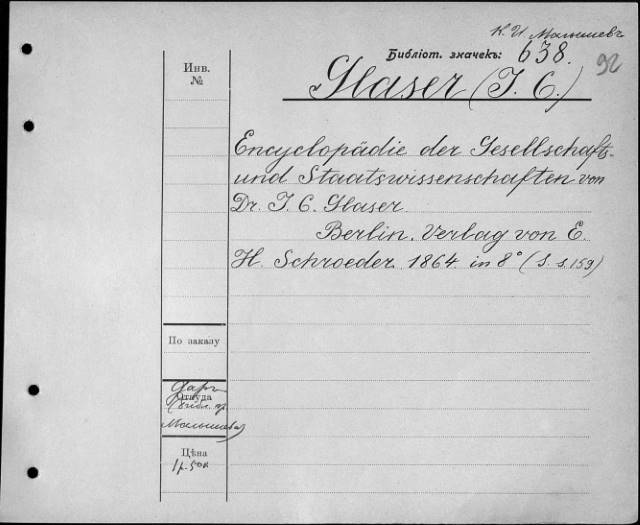 К. И. Малышевъ
Библіот. значекъ: 638.
92
Инв.
№
Glaser (J. C.)
Encyclopädie der Gesellschafts-
und Staatswissenschaften von
Dr. J. C. Glaser.
Berlin. Verlag von E.
H. Schroeder 1864 in 8° (S. s. 159)
По заказу
Откуда
Даръ
Малышева
Цѣна
1 р. 50 к